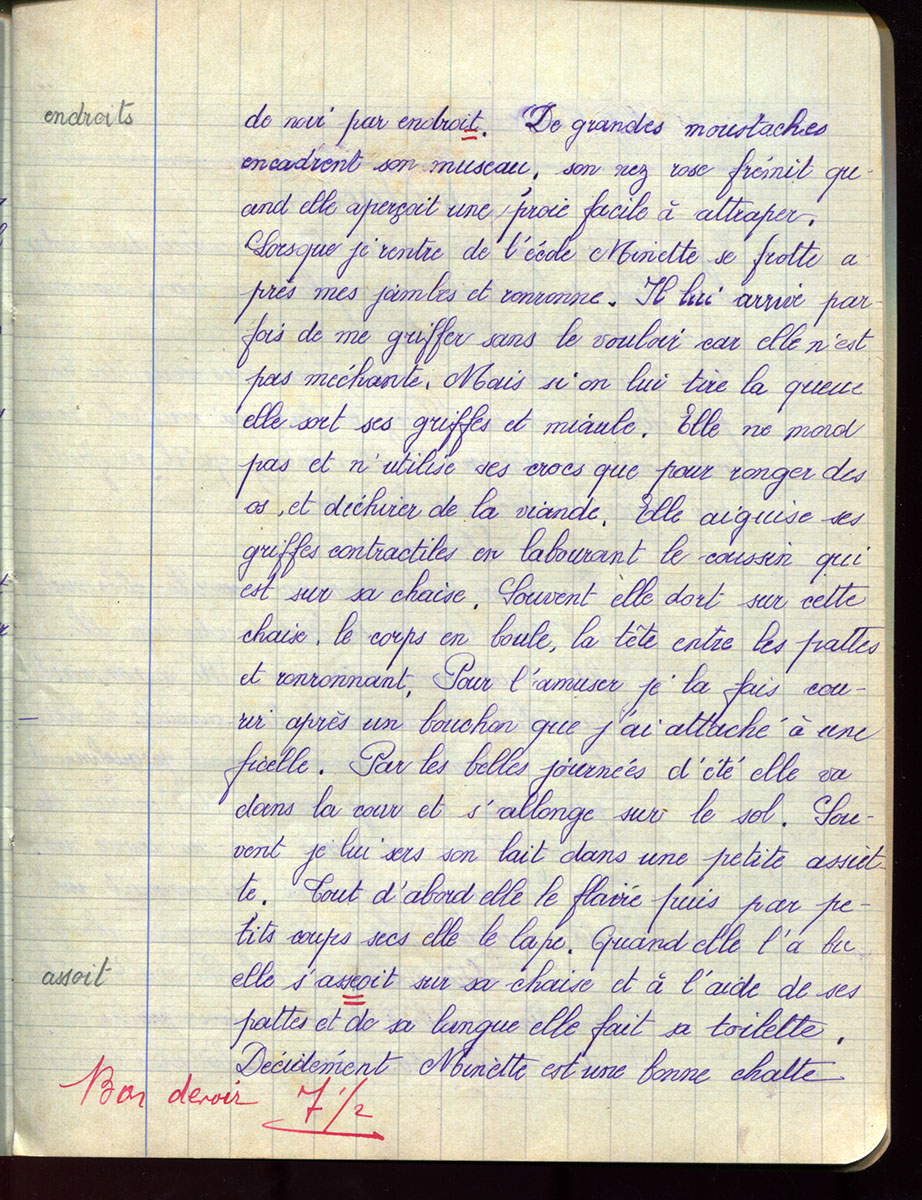 endroits
de noir par endroit. De grandes moustaches
encadrent son museau, son nez rose frémit qu-
and elle aperçoit une proie facile à attraper.
Lorsque je rentre de l'école Minette se frotte a
près mes jambes et ronronne. Il lui arrive par-
fois de me griffer sans le vouloir car elle n'est
pas méchante. Mais si on lui tire la queue
elle sort ses griffes et miaule. Elle ne mord
pas et n'utilise ses crocs que pour ronger des
os, et déchirer de la viande. Elle aiguise ses
griffes contractiles en labourant le coussin qui
est sur sa chaise. Souvent elle dort sur cette
chaise, le corps en boule, la tête entre les pattes
et ronronnant. Pour l'amuser je la fais cou-
rir après un bouchon que j'ai attaché à une
ficelle. Par les belles journées d'été elle va
dans la cour et s'allonge sur le sol. Sou-
vent je lui sers son lait dans une petite assiet-
te. Tout d'abord elle le flaire puis par pe-
tits coups secs elle le lape. Quand elle l'a bu
assoit
elle s'asseoit sur sa chaise et à l'aide de ses
pattes et de sa langue elle fait sa toilette.
Décidément Minette est une bonne chatte
Bon devoir 7 1/2